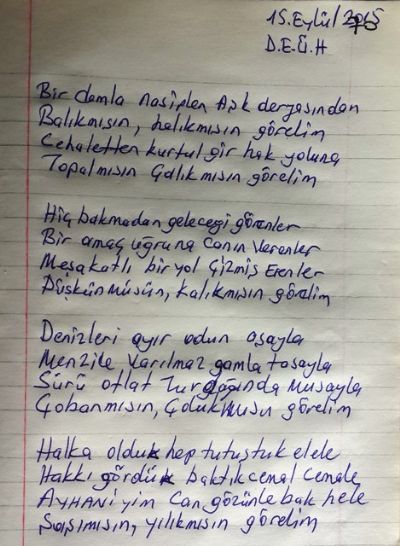 15.Eylül 2015
D.E.Ü.H
Bir damla nasiplen Aşk deryasından
Balıkmısın, halıkmısın görelim
Cehaletten kurtul gir hak yoluna
Topalmısın Çalıkmısın görelim
Hiç bakmadan geleceği görenler
Bir amaç uğruna canın verenler
Meşakatlı bir yol Çizmiş Erenler
Düşkünmüsün, kalıkmısın görelim
Denizleri ayır odun asayla
Menzile varılmaz gamla tasayla
Sürü otlat Turdağında Musayla
Çobanmısın, Çolukmusun görelim
Halka olduk hep tutuştuk elele
Hakkı gördük baktık cemal cemale
AYHANİ'yim Can gözünle bak hele
Şaşımısın, yılıkmısın görelim